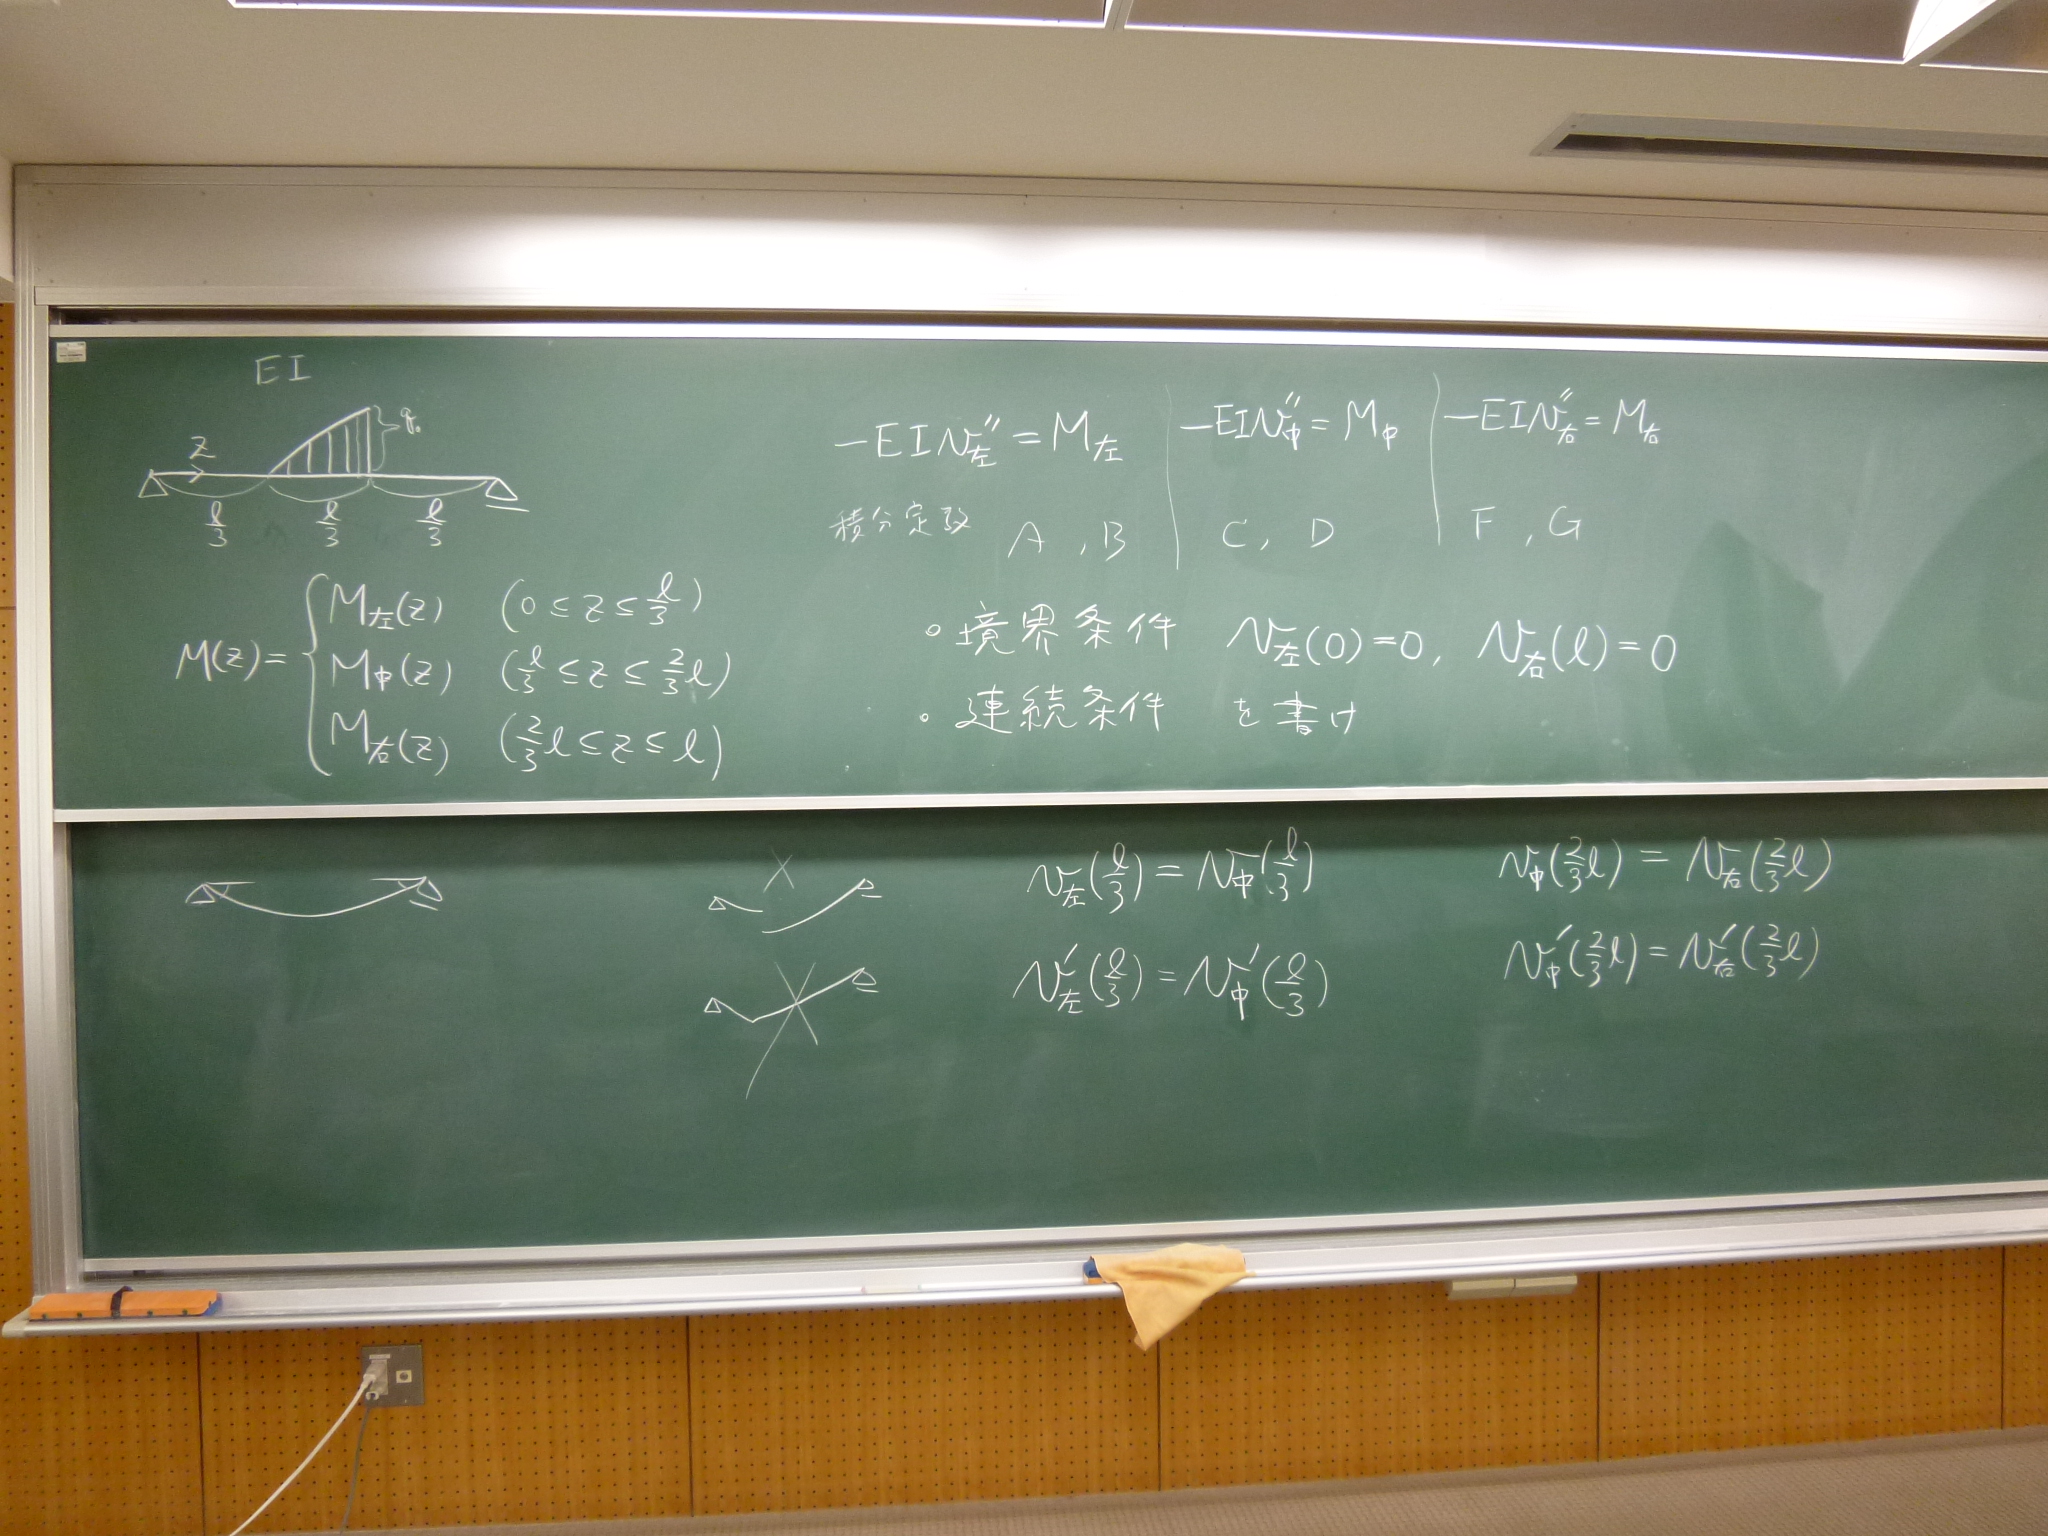 EI
z q₀
l/3 l/3 l/3
M(z)= { M左(z) (0≤z≤l/3)
M中(z) (l/3≤z≤2/3l)
M右(z) (2/3l≤z≤l)
−EIv左″=M左 −EIv中″=M中 −EIv右″=M右
積分定数 A,B C,D F,G
・境界条件 v左(0)=0, v右(l)=0
・連続条件 を書け
v左(l/3)=v中(l/3) v中(2/3l)=v右(2/3l)
v左′(l/3)=v中′(l/3) v中′(2/3l)=v右′(2/3l)